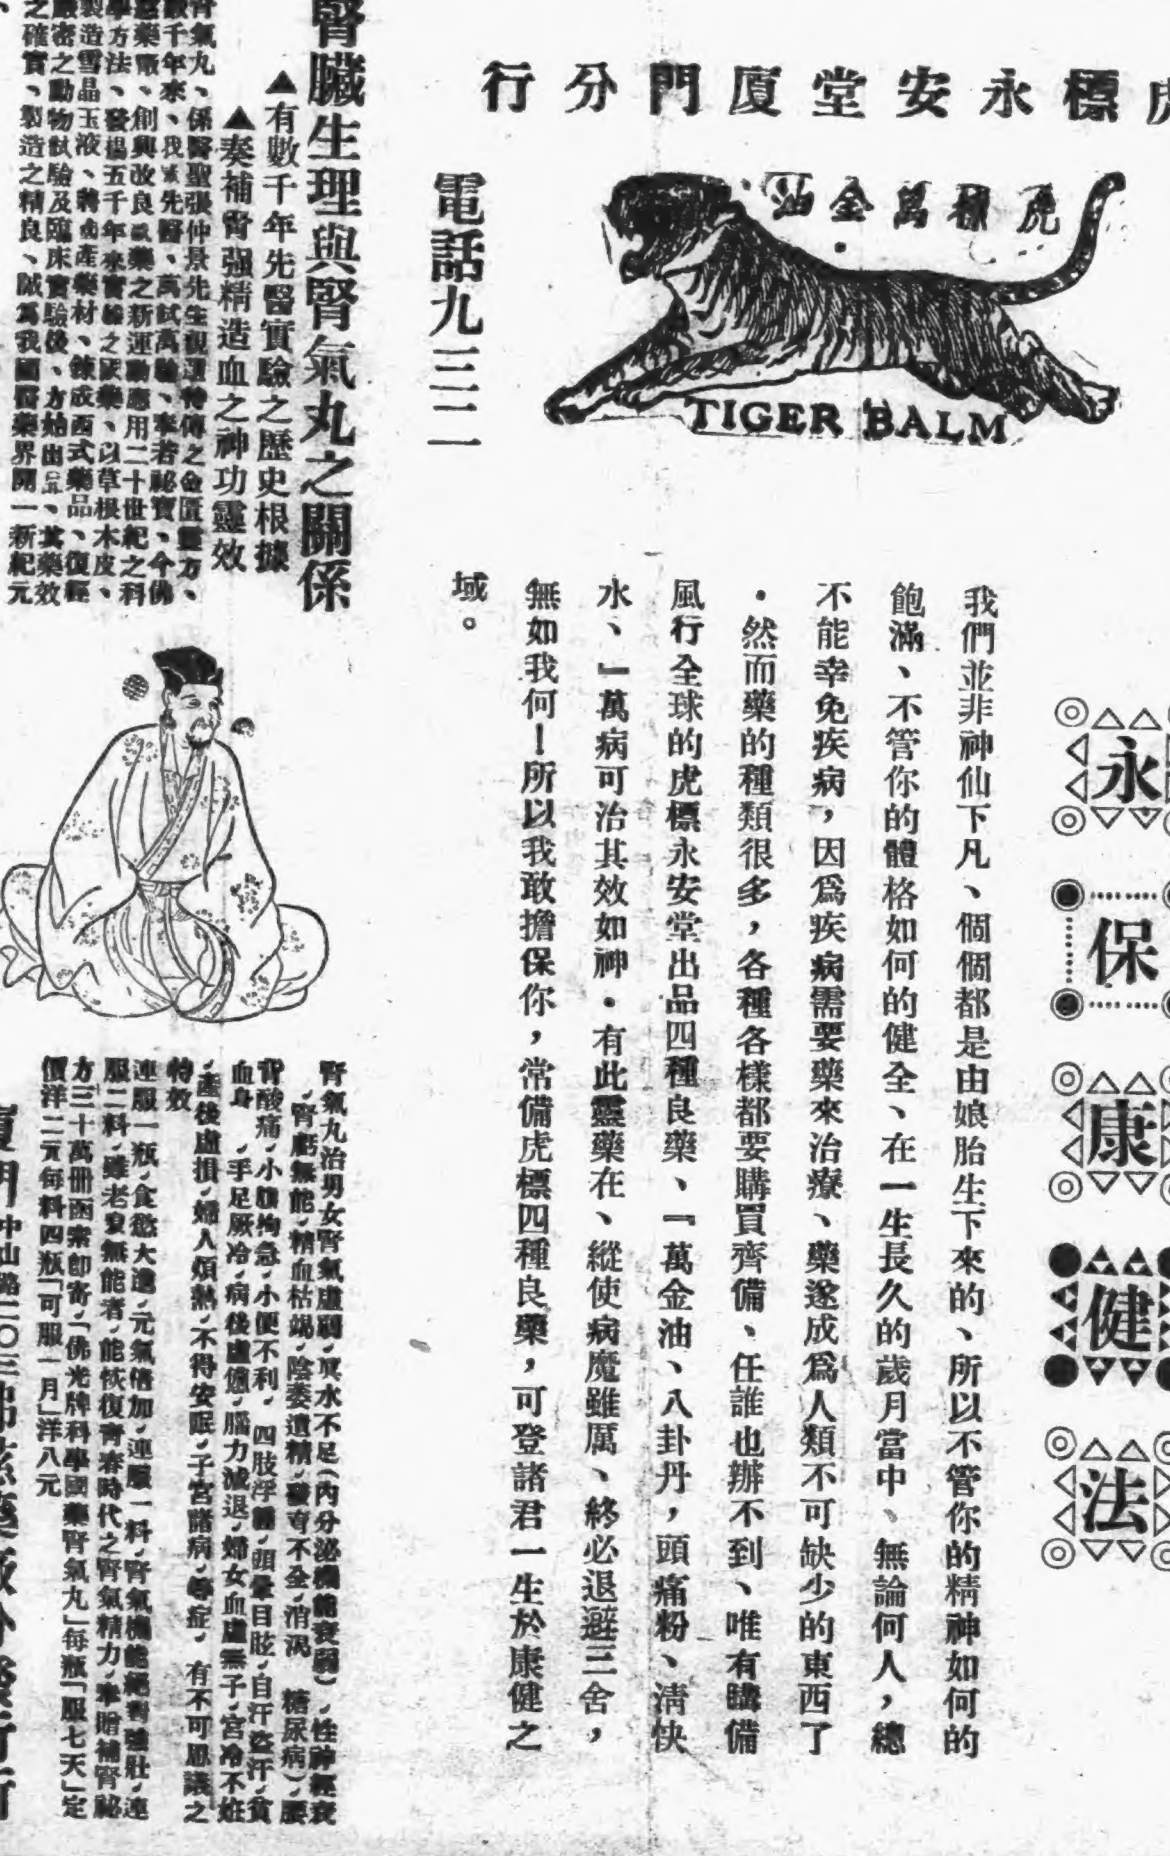 虎標永安堂廈門分行
虎標萬金油
TIGER BALM
電話九三二
永
保
康
健
法
我們並非神仙下凡、個個都是由娘胎生下來的、所以不管你的精神如何的
飽滿、不管你的體格如何的健全、在一生長久的歲月當中、無論何人，總
不能幸免疾病，因爲疾病需要藥來治療、藥遂成爲人類不可缺少的東西了
．然而藥的種類很多，各種各樣都要購買齊備、任誰也辦不到、唯有購備
風行全球的虎標永安堂出品四種良藥、『萬金油、八卦丹，頭痛粉、清快
水、』萬病可治其效如神．有此靈藥在、縱使病魔雖厲、終必退避三舍，
無如我何！所以我敢擔保你，常備虎標四種良藥，可登諸君一生於康健之
域。
腎臟生理與腎氣丸之關係
▲有數千年先醫實驗之歷史根據
▲奏補腎强精造血之神功靈效
腎氣丸、係醫聖張仲景先生之金匱靈方、
數千年來、我先醫、萬試萬驗、奉若祕寶、今佛
慈藥廠、創興改良國藥之新運動應用二十世紀之科
學方法、發揚五千年來實驗之國藥、以草根木皮、
製造雪晶玉液、將國產藥材、鍊成西式藥品、復經
嚴密之動物試驗及臨床實驗後、方始出品、其藥效
之確實、製造之精良、誠爲我國醫藥界開一新紀元
腎氣丸治男女腎氣虛弱，眞水不足（內分泌機能衰弱），性神經衰
，腎虧無能，精血枯竭，陰委遺精，發育不全，消渴 糖尿病），腰
背酸痛，小腹拘急，小便不利，四肢浮腫，頭暈目眩，自汗盜汗，貧
血身 ，手足厥冷，病後虛憊，腦力減退，婦女血虛無子，宮冷不姙
，產後虛損，婦人煩熱，不得安眠，子宮諸病，等症，有不可思議之
特效
連服一瓶，食慾大進，元氣倍加，連服一料，腎氣機能絕對強壯，連
服二料，雖老衰無能者，能恢復青春時代之腎氣精力，奉贈補腎祕
方三十萬冊函索卽寄，「佛光牌科學國藥腎氣丸」每瓶「服七天」定
價洋二元每料四瓶「可服一月」洋八元
廈門中山路二〇三佛慈藥廠分發行所